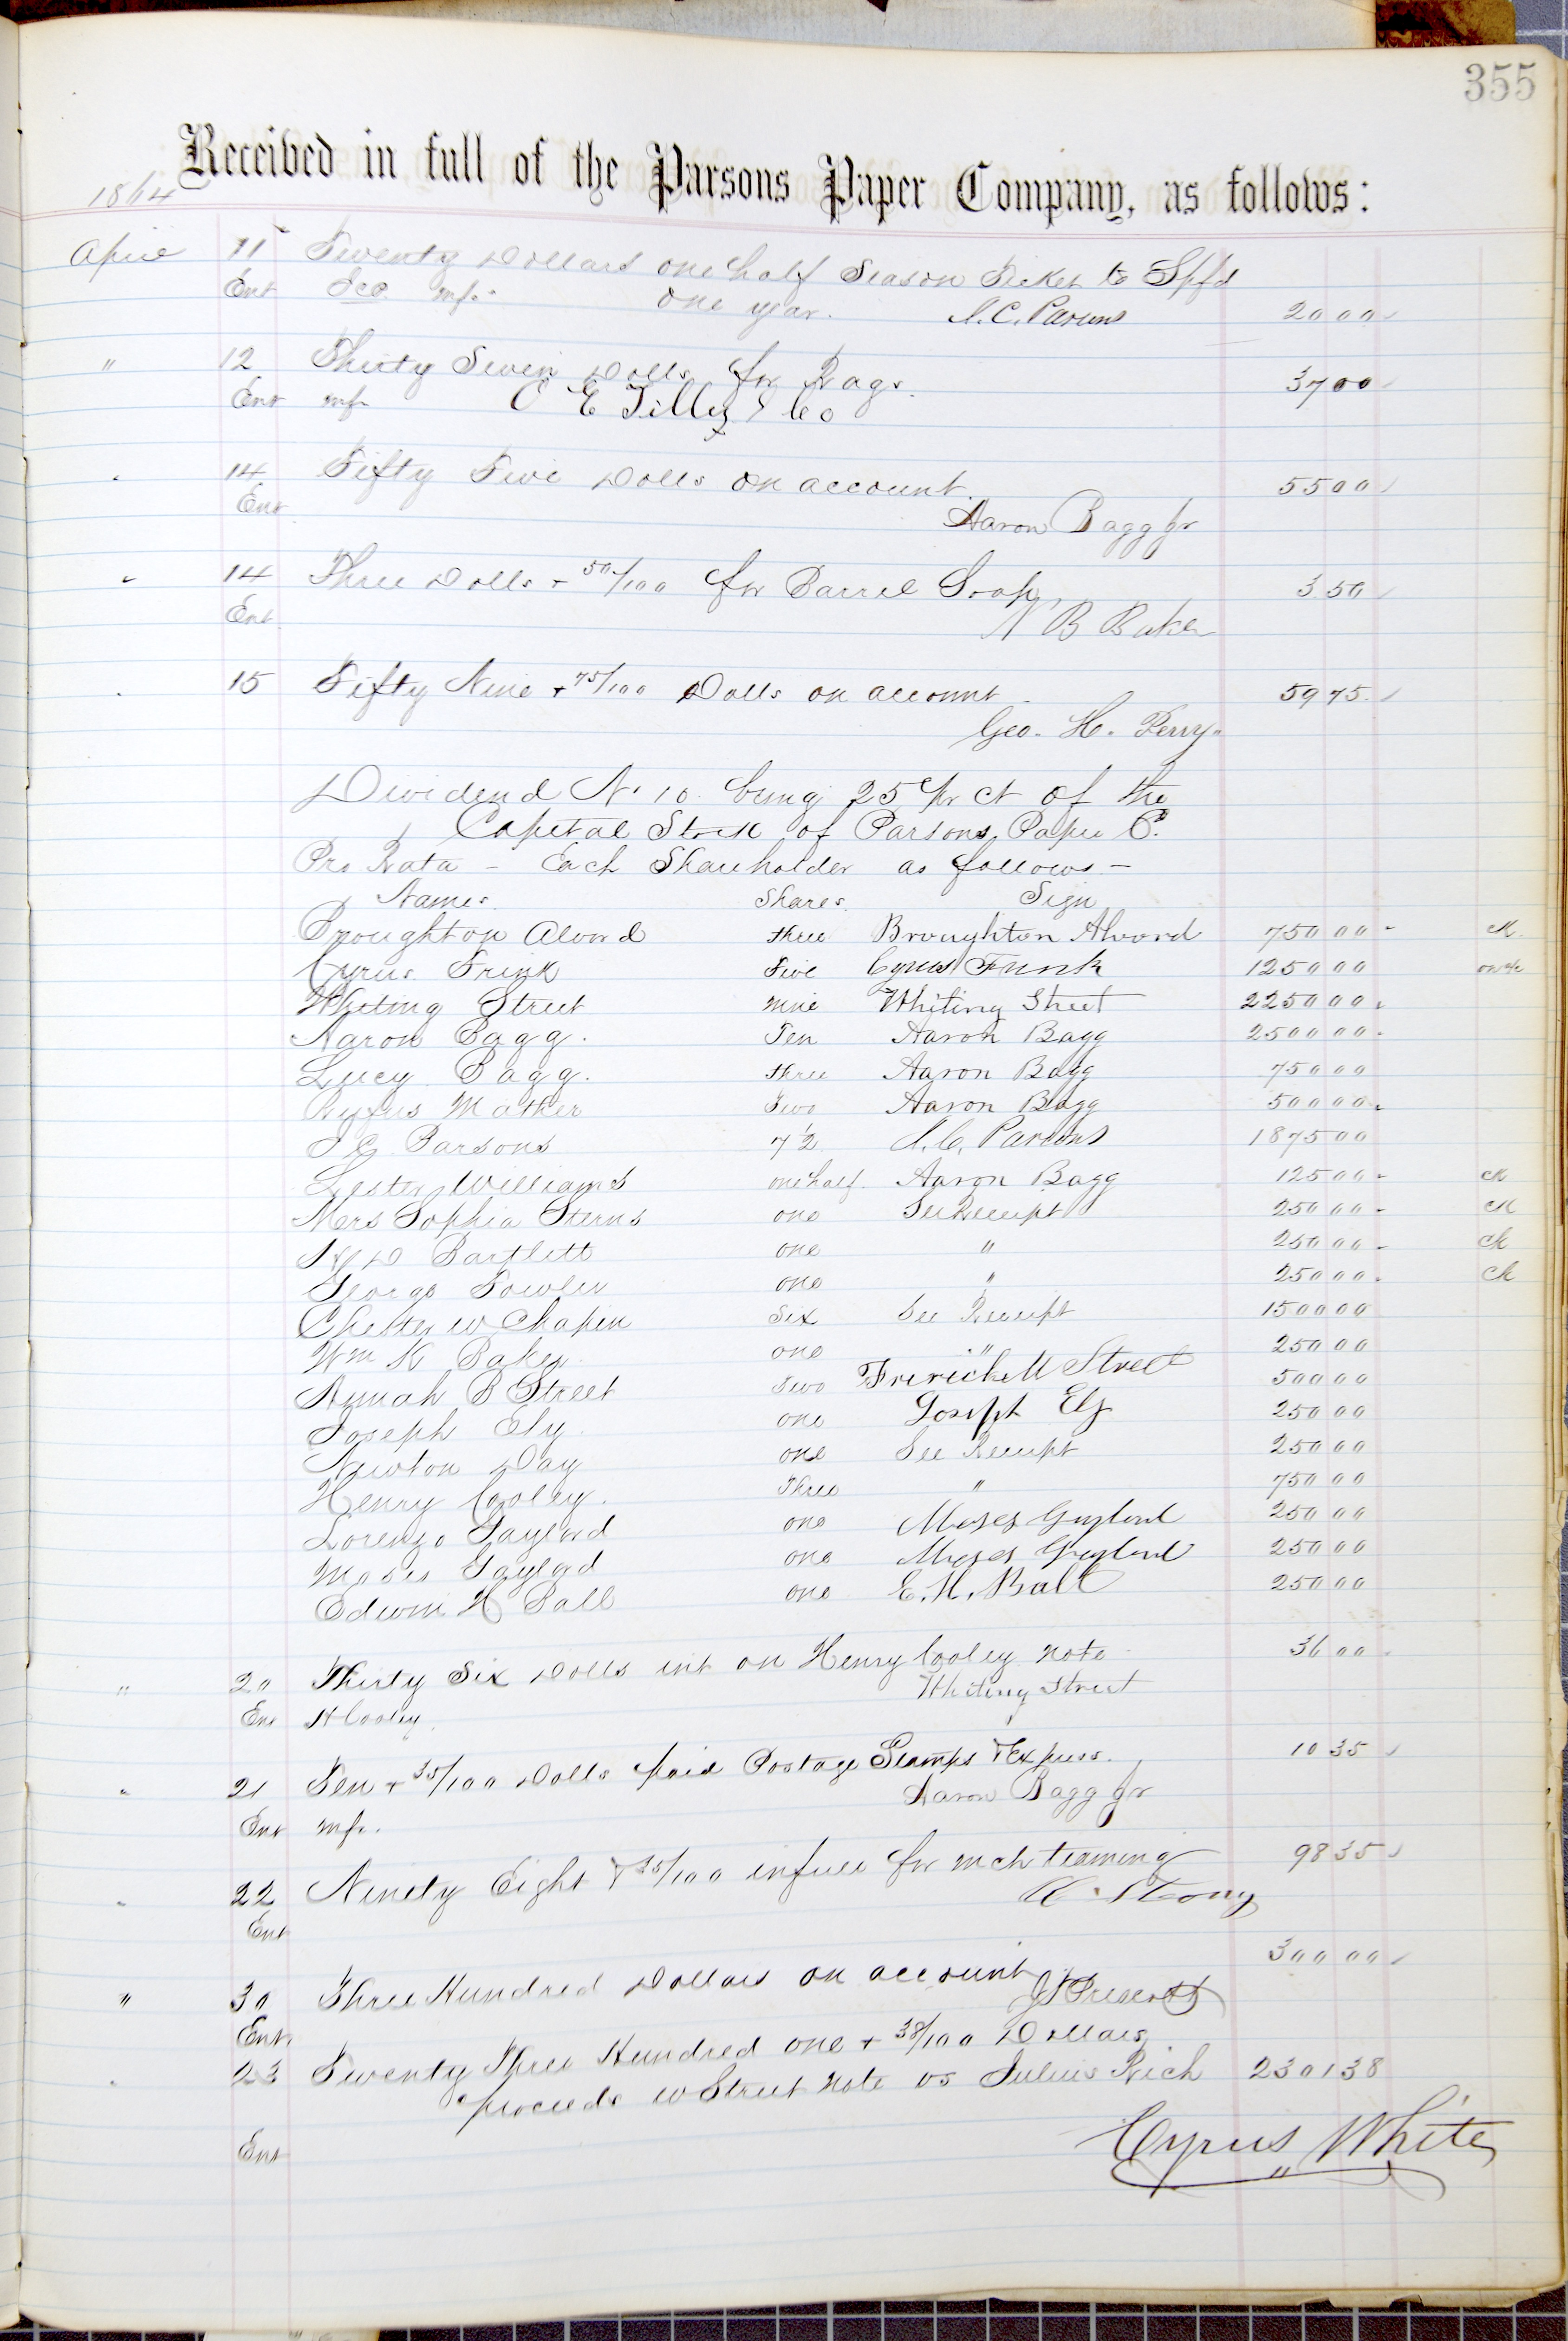 355
Received in full of the Parsons Paper Company, as follows:
1864
April 11 Twenty Dollars one half Season Ticket to Spfd
Ent mfr one year. J. C. Parsons 20 00
" 12 Thirty Seven Dolls for Rags. 37 00
Ent mfr C E Tilley & Co
" 14 Fifty Five Dolls on account 55 00
Ent Aaron Bagg Jr
" 14 Three Dolls + 50/100 for Barrel Soap 3 50
Ent N B Baker
" 15 Fifty Nine + 75/100 Dolls on account 59 75
Geo. H. Perry
Dividend No 10 being 25 pr ct of the
Capital Stock of Parsons Paper C.
Pro Rata - Each Shareholder as follows -
Names Shares Sign
Broughton Alvord three Broughton Alvord 750 00 ck
Cyrus Frink Five Cyrus Frink 1250 00
Whiting Street nine Whiting Street 2250 00
Aaron Bagg. Ten Aaron Bagg 2500 00
Lucy Bagg. three Aaron Bagg 750 00
Rufus Mather Two Aaron Bagg 500 00
J C Parsons 7 1/2 J. C. Parsons 1875 00
Lester Williams one half Aaron Bagg 125 00 ck
Mers Sophia Sterns one See Receipt 250 00 ck
D Bartlett one " 250 00 ck
George Fowler one " 250 00 ck
Chester W Chapin Six See Receipt 1500 00
Wm K Baker one " 250 00
B Street Two Street 500 00
Joseph Ely one Joseph Ely 250 00
Newton Day one See Receipt 250 00
Henry Cooley. Three " 750 00
Lorenzo Gaylord one Moses Gaylord 250 00
Moses Gaylord one Moses Gaylord 250 00
Edwin H Ball one E. H. Ball 250 00
" 20 Thirty Six Dolls int on Henry Cooley note 36 00
Whiting Street
Ent H Cooley
" 21 Ten + 35/100 Dolls paid Postage Stamps & Express. 10 35
Aaron Bagg Jr
Ent mfr.
" 22 Ninety Eight & 35/100 in full for mch teaming 98 35
Strong
Ent
" 30 Three Hundred Dollars on account 300 00
Prescott
Ent
" 23 Twenty Three Hundred one + 38/100 Dollars
proceeds W Street note vs Julius Rich 2301 38
Ent Cyrus White